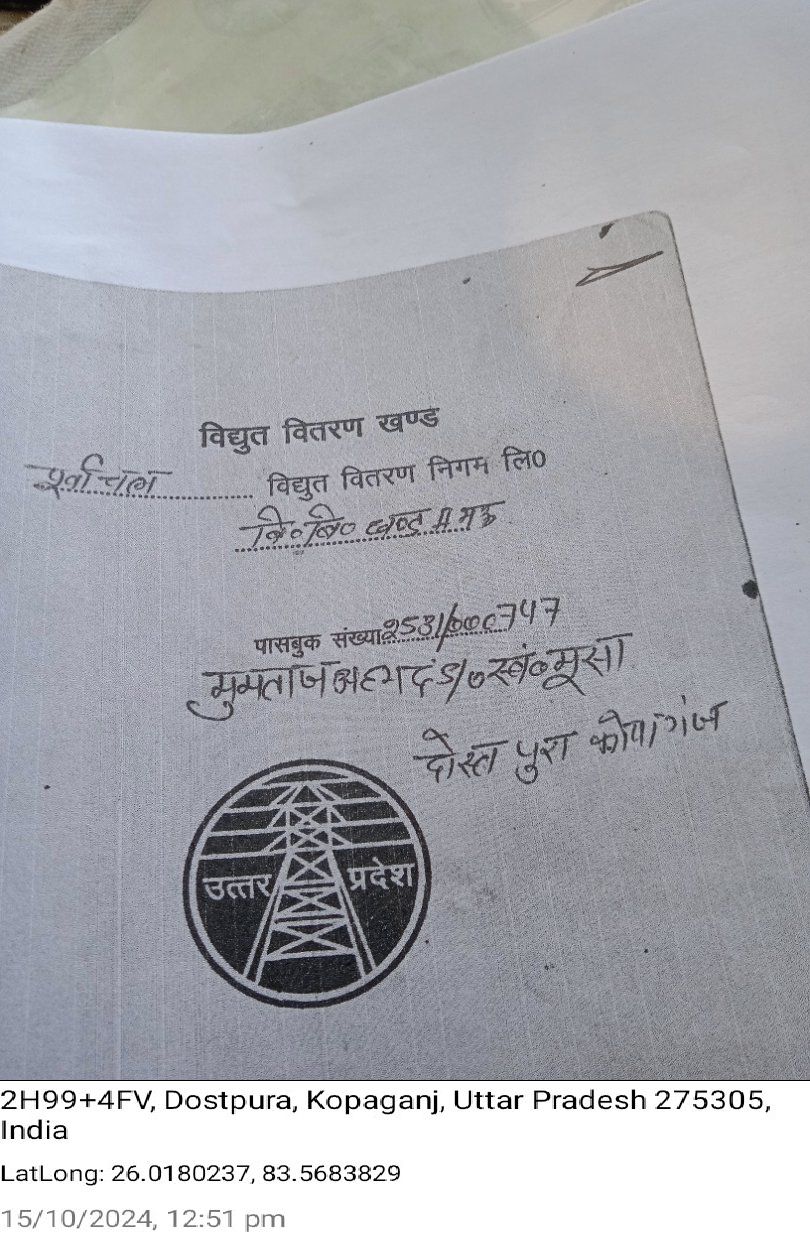 विद्युत वितरण खण्ड
पूर्वांचल विद्युत वितरण निगम लि०
वि० वि० खण्ड II मऊ
पासबुक संख्या 2531/000747
मुमताज अहमद S/o स्वं० मूसा
दोस्त पुरा कोपागंज
उत्तर प्रदेश
2H99+4FV, Dostpura, Kopaganj, Uttar Pradesh 275305,
India
LatLong: 26.0180237, 83.5683829
15/10/2024, 12:51 pm